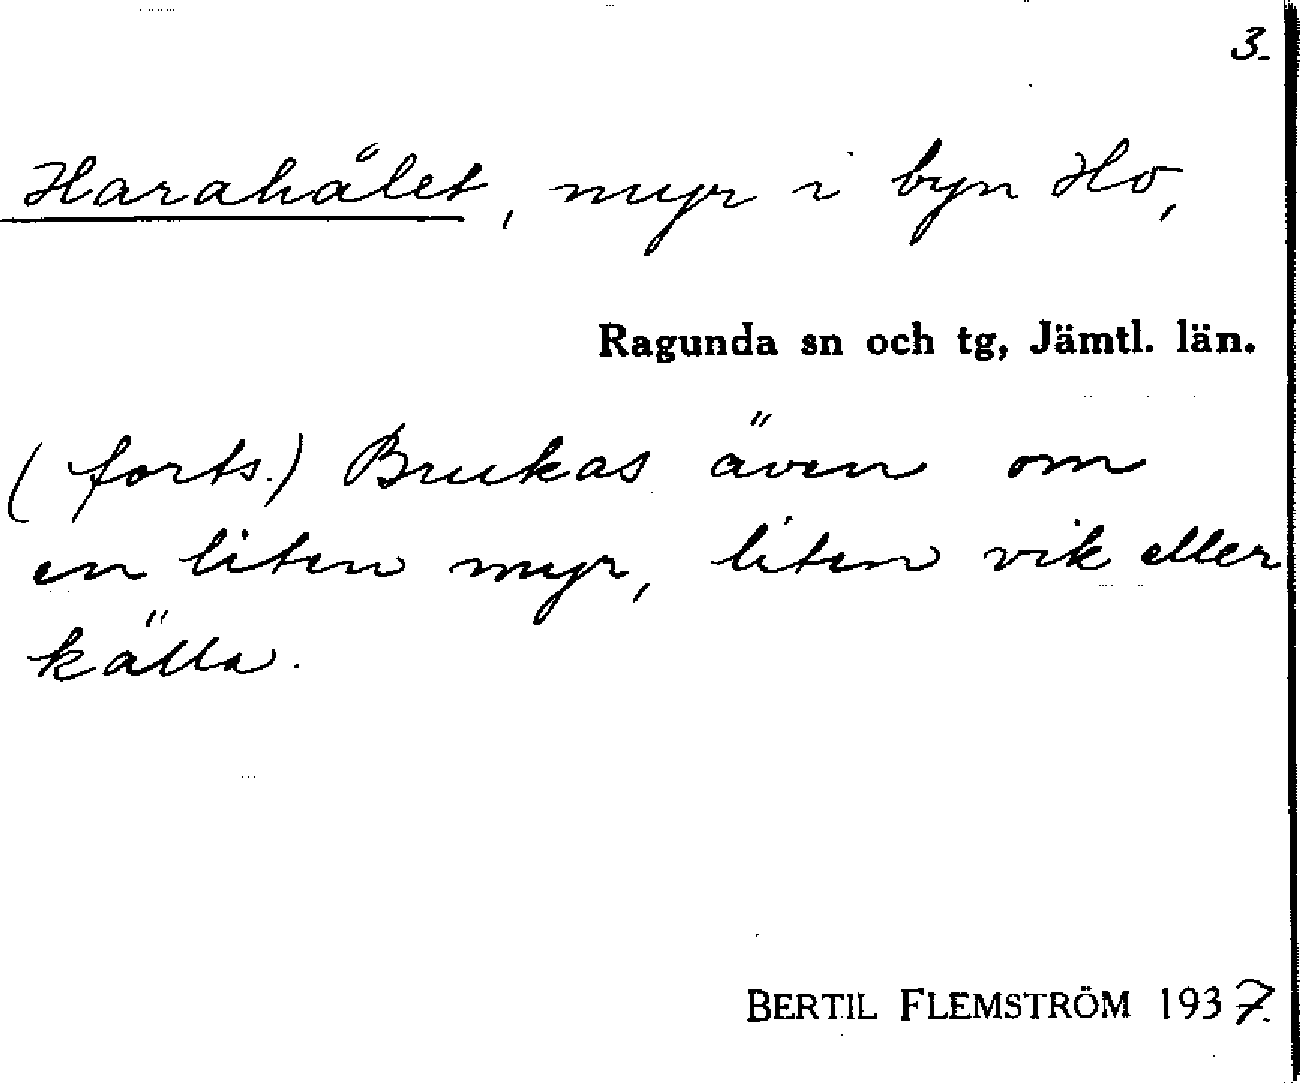 3.
Harahålet, myr i byn Ho,
Ragunda sn och tg, Jämtl. län.
(forts.) Brukas även om
en liten myr, liten vik eller
källa.
BERTIL FLEMSTRÖM 1937.